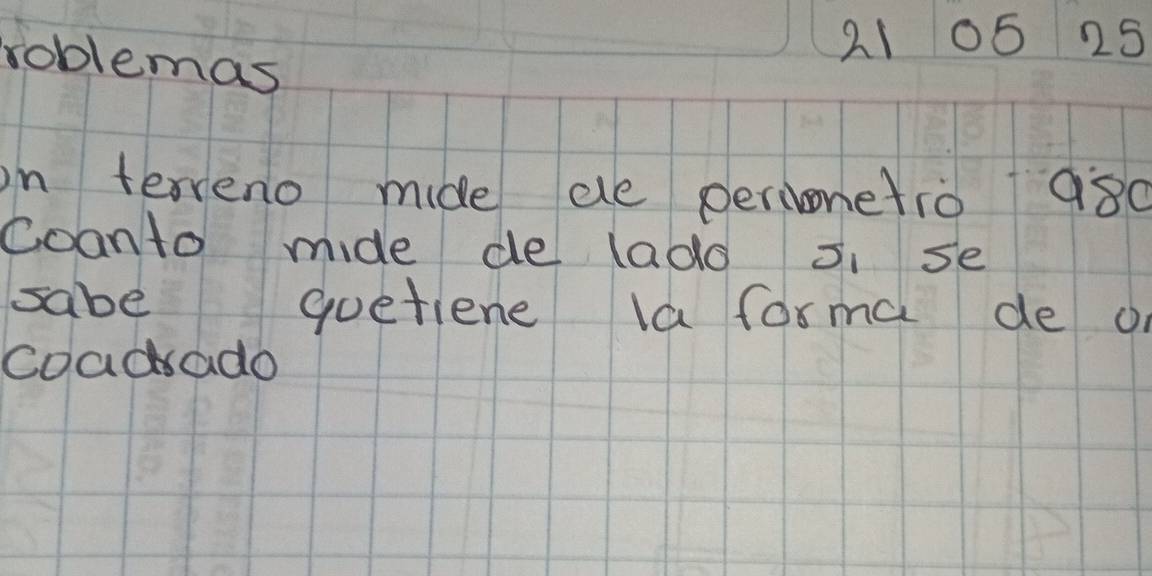 21 05 25
roblemas
on terreno mide de perimetro 980
Coanto mide de lado si se
sabe quetiene la forma de on
coadrado